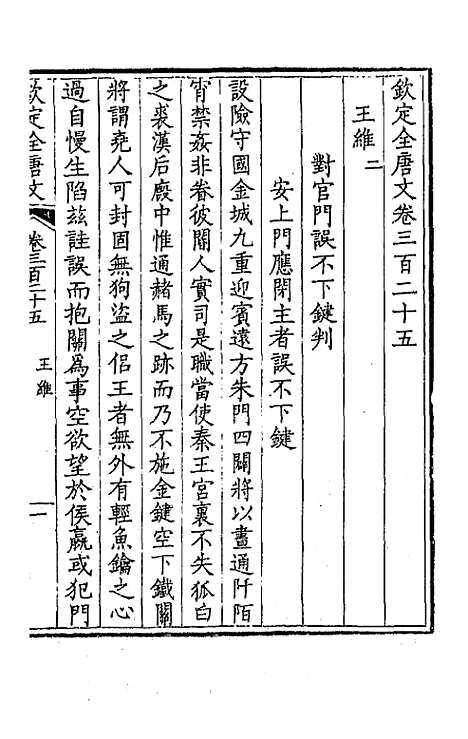 欽定全唐文卷三百二十五
王維二
對官門誤不下鍵判
安上門應閉主者誤不下鍵
設險守國金城九重迎賓遠方朱門四闢將以晝通阡陌
宵禁姦非眷彼閽人實司是職當使秦王宮裏不失狐白
之裘漢后廄中惟通赭馬之跡而乃不施金鍵空下鐵關
將謂堯人可封固無狗盜之侶王者無外有輕魚鑰之心
過自慢生陷茲詿誤而抱關爲事空欲望於侯嬴或犯門
欽定全唐文
卷三百二十五
王維
一